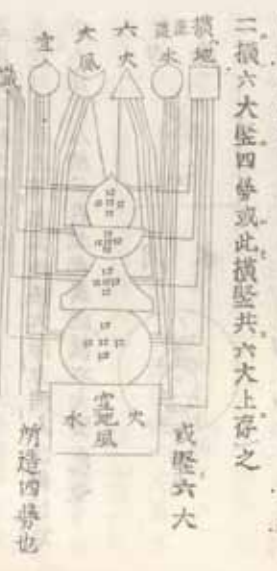 二横六大竪四曼或此横竪共六大上存之
横 地
水
六 火
大 風
空
識
火
空地風
水
或竪六大
所造四曼也